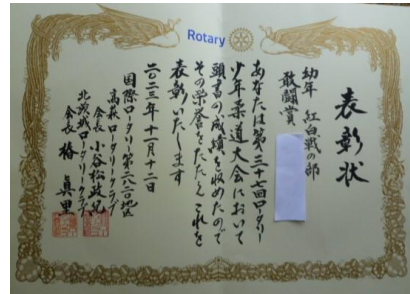 Rotary
表彰状
幼年 紅白戦の部
敢闘賞
あなたは第三十七回ロータリー
少年柔道大会において
頭書の成績を収めたので
その栄誉をたたえこれを
表彰いたします
二〇二三年十一月十二日
国際ロータリー第二八二〇地区
高萩ロータリークラブ
会長 小谷松政紀
北茨城ロータリークラブ
会長 椿 真里